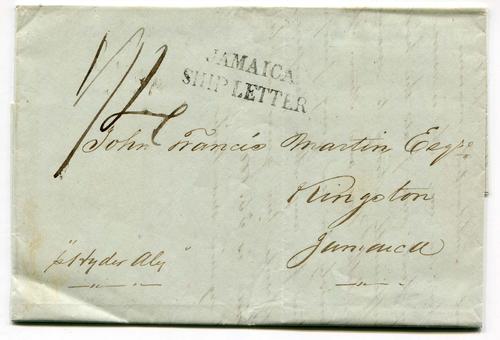 JAMAICA
SHIP LETTER
1/4
John Francis Martin Esqre
Kingston
Jamaica
"p Hyder Aly"